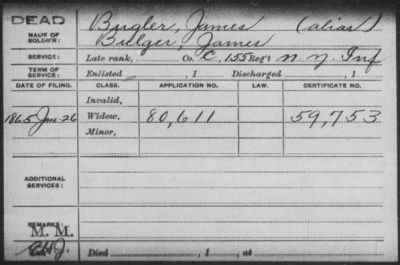 DEAD
NAME OF SOLDIER: Bugler, James (alias)
Bulger, James
SERVICE: Late rank, Co. C, 155 Reg't N.Y. Inf
TERM OF SERVICE: Enlisted , 1 Discharged , 1
DATE OF FILING. CLASS. APPLICATION NO. LAW. CERTIFICATE NO.
Invalid,
1865 Jan. 26 Widow, 80,611 59,753
Minor,
ADDITIONAL SERVICES:
REMARKS:
M. M.
Died , 1 , at